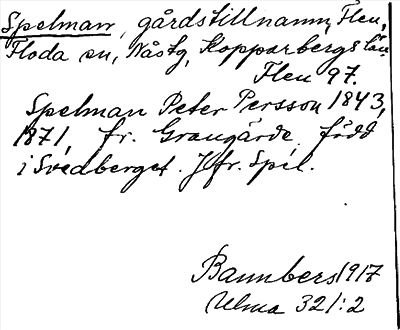 Spelman, gårdstillnamn, Flen,
Floda sn, Nåstg, Kopparbergs län.
Flen 97.
Spelman Peter Persson 1843,
1871, fr. Grangärde, född
i Svedberget. Jfr. Spel.
1917
Ulma 321:2